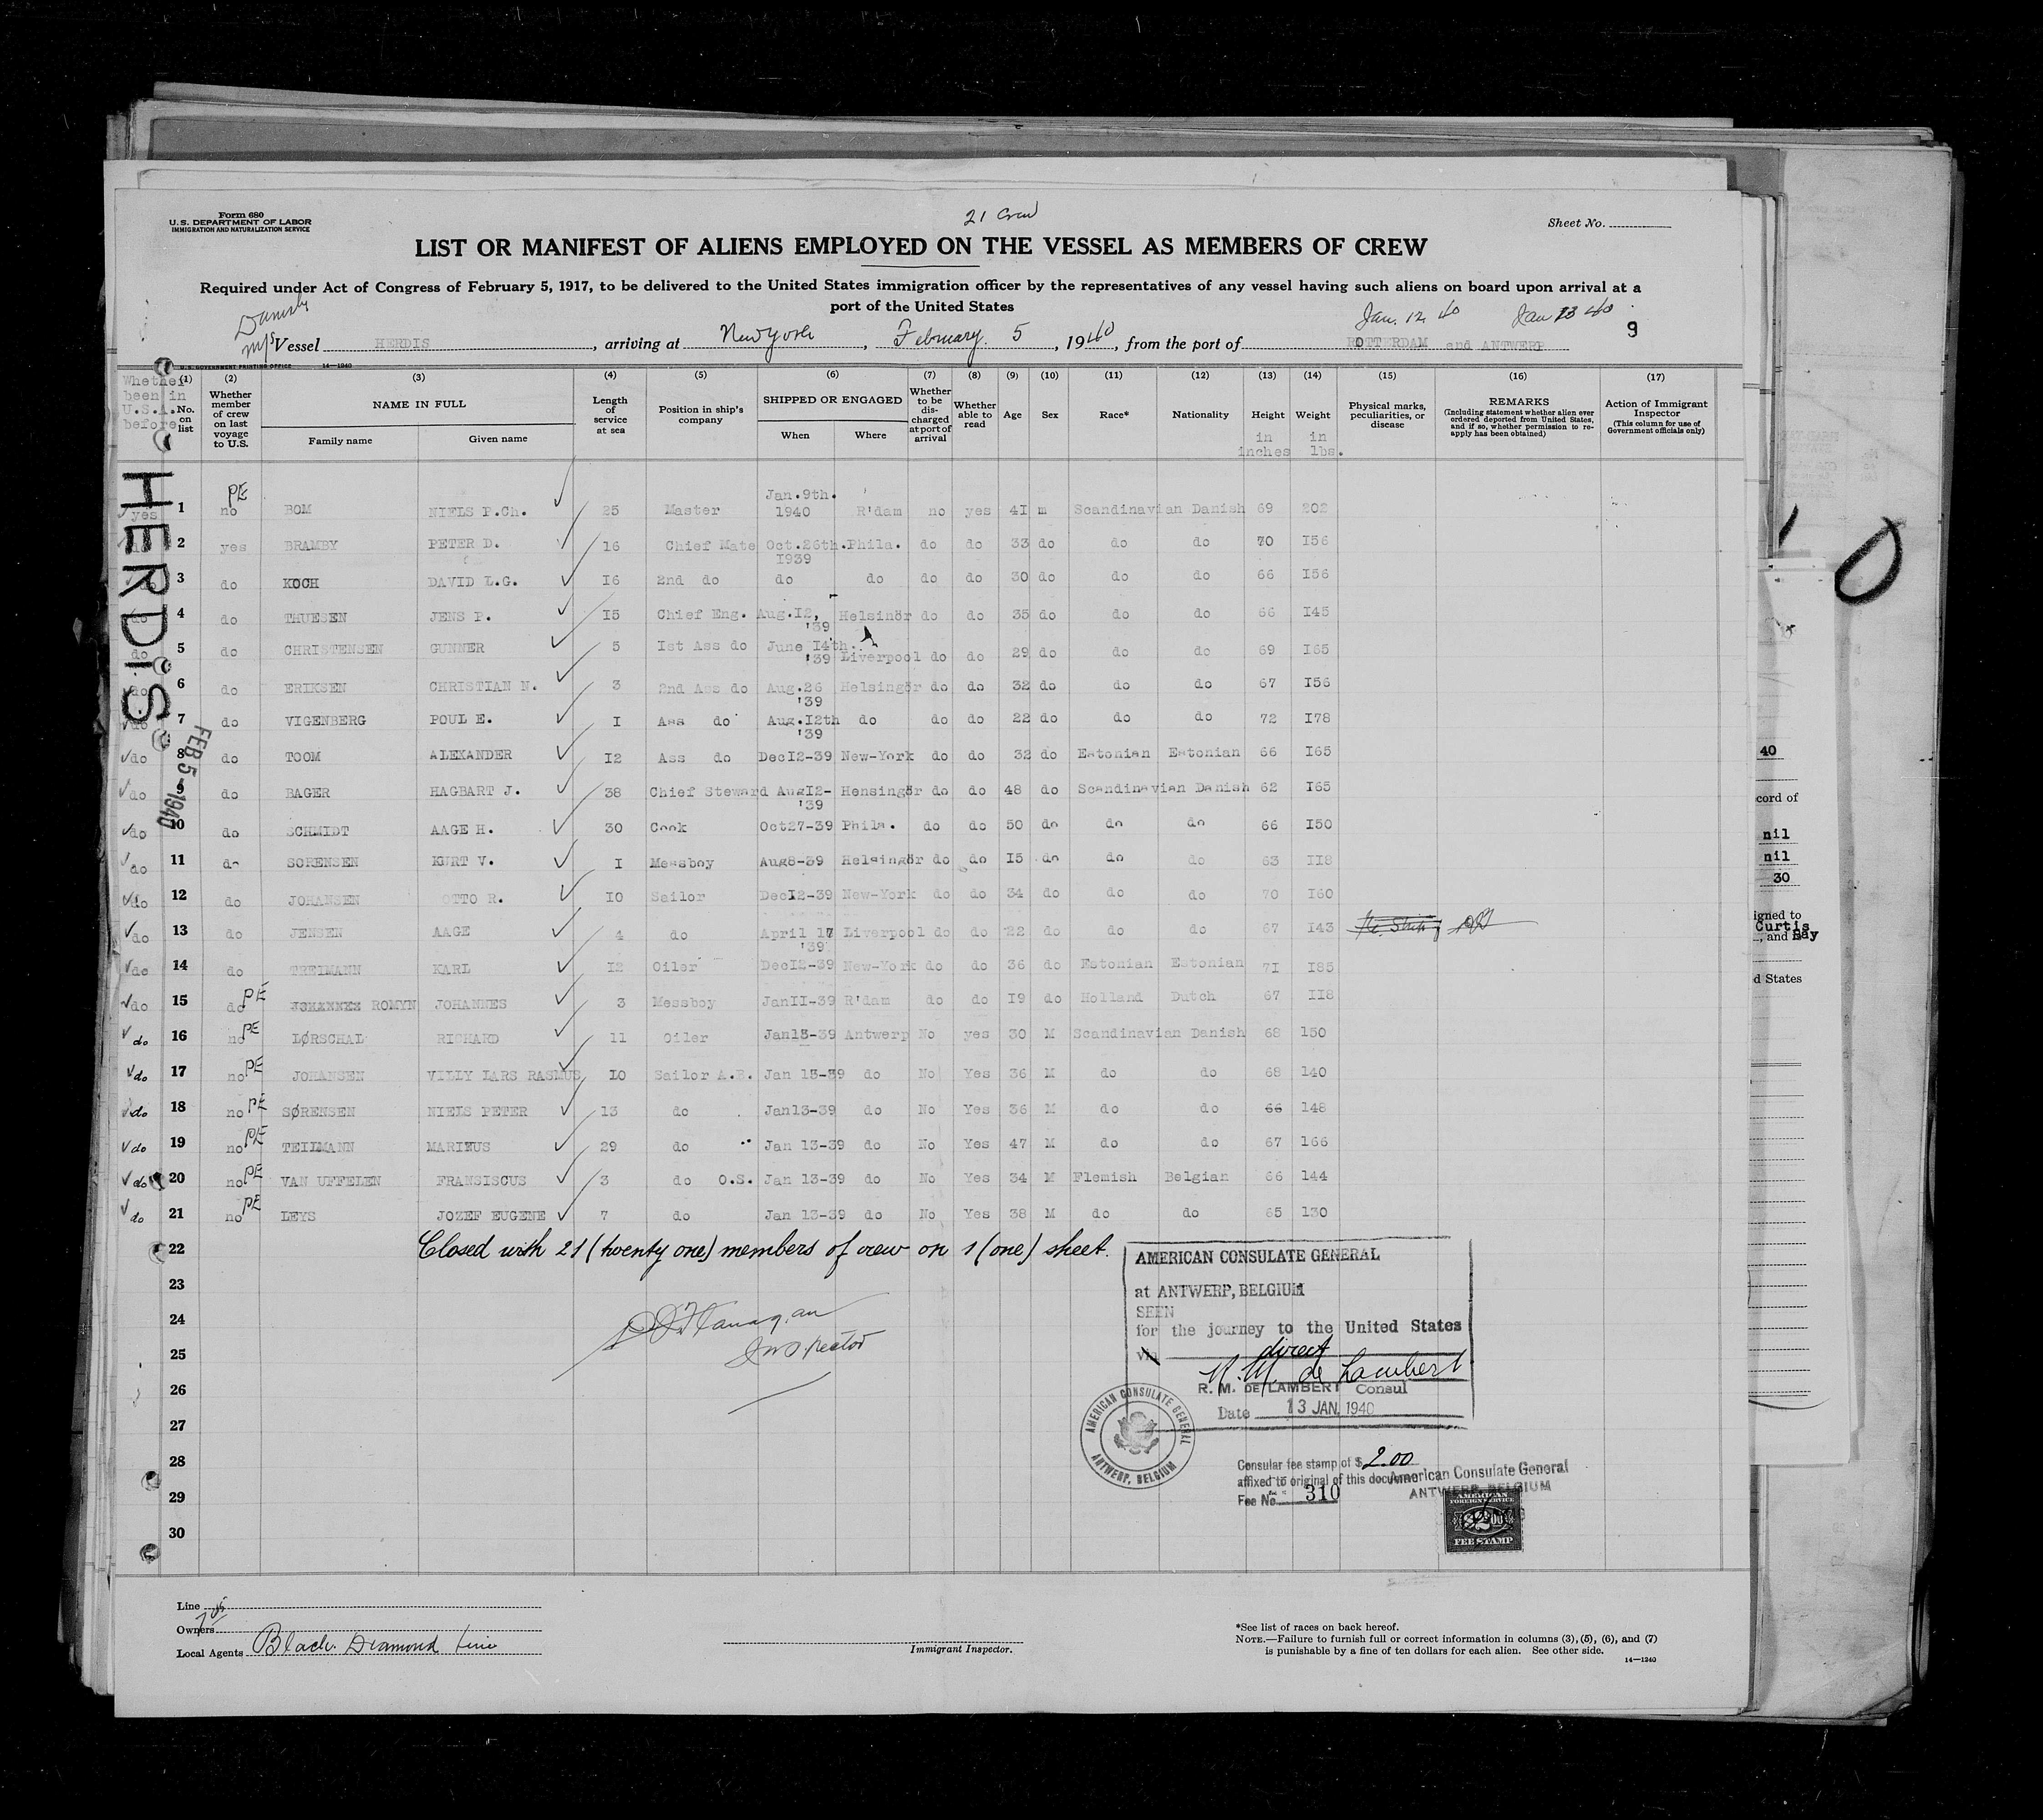 21 Crew
Form 680
U. S. DEPARTMENT OF LABOR
IMMIGRATION AND NATURALIZATION SERVICE
Sheet No.
LIST OR MANIFEST OF ALIENS EMPLOYED ON THE VESSEL AS MEMBERS OF CREW
Required under Act of Congress of February 5, 1917, to be delivered to the United States immigration officer by the representatives of any vessel having such aliens on board upon arrival at a
port of the United States
Danish Jan. 12 40 Jan 13 40
M/S Vessel HERDIS, arriving at New York, February 5, 1940, from the port of ROTTERDAM and ANTWERP 9
U. S. GOVERNMENT PRINTING OFFICE 14—1240
Whether been in U.S.A. before
(1) No. on list
(2) Whether member of crew on last voyage to U.S.
(3) NAME IN FULL Family name Given name
(4) Length of service at sea
(5) Position in ship's company
(6) SHIPPED OR ENGAGED When Where
(7) Whether to be discharged at port of arrival
(8) Whether able to read
(9) Age
(10) Sex
(11) Race*
(12) Nationality
(13) Height in inches
(14) Weight in lbs.
(15) Physical marks, peculiarities, or disease
(16) REMARKS (Including statement whether alien ever ordered deported from United States, and if so, whether permission to reapply has been obtained)
(17) Action of Immigrant Inspector (This column for use of Government officials only)
HERDIS
FEB 5 - 1940
yes 1 PE no BOM NIELS P.Ch. 25 Master Jan.9th. 1940 R'dam no yes 41 m Scandinavian Danish 69 202
do 2 yes BRAMBY PETER D. 16 Chief Mate Oct.26th. 1939 Phila. do do 33 do do do 70 156
do 3 do KOCH DAVID L.G. 16 2nd do do do do do 30 do do do 66 156
do 4 do THUESEN JENS P. 15 Chief Eng. Aug.12, '39 Helsinör do do 35 do do do 66 145
do 5 do CHRISTENSEN GUNNER 5 1st Ass do June 14th. '39 Liverpool do do 29 do do do 69 165
do 6 do ERIKSEN CHRISTIAN N. 3 2nd Ass do Aug.26 '39 Helsingör do do 32 do do do 67 156
do 7 do VIGENBERG POUL E. 1 Ass do Aug.12th '39 do do do 22 do do do 72 178
do 8 do TOOM ALEXANDER 12 Ass do Dec12-39 New-York do do 32 do Estonian Estonian 66 165
do 9 do BAGER HAGBART J. 38 Chief Steward Aug12- '39 Hensingör do do 48 do Scandinavian Danish 62 165
do 10 do SCHMIDT AAGE H. 30 Cook Oct27-39 Phila. do do 50 do do do 66 150
do 11 do SORENSEN KURT V. 1 Messboy Aug8-39 Helsingör do do 15 do do do 63 118
do 12 do JOHANSEN OTTO R. 10 Sailor Dec12-39 New-York do do 34 do do do 70 160
do 13 do JENSEN AAGE 4 do April 17 '39 Liverpool do do 22 do do do 67 143
do 14 do TREIMANN KARL 12 Oiler Dec12-39 New-York do do 36 do Estonian Estonian 71 185
do 15 do PE ROMYN JOHANNES 3 Messboy Jan11-39 R'dam do do 19 do Holland Dutch 67 118
do 16 no PE LØRSCHAL RICHARD 11 Oiler Jan13-39 Antwerp No yes 30 M Scandinavian Danish 68 150
do 17 no PE JOHANSEN VILLY LARS RASMUS 10 Sailor A.B. Jan 13-39 do No Yes 36 M do do 68 140
do 18 no PE SØRENSEN NIELS PETER 13 do Jan13-39 do No Yes 36 M do do 66 148
do 19 no PE TEILMANN MARIEUS 29 do Jan 13-39 do No Yes 47 M do do 67 166
do 20 no PE VAN UFFELEN FRANSISCUS 3 do O.S. Jan 13-39 do No Yes 34 M Flemish Belgian 66 144
do 21 no PE LEYS JOZEF EUGENE 7 do Jan 13-39 do No Yes 38 M do do 65 130
22 Closed with 21 (twenty one) members of crew on 1 (one) sheet.
23
24
25
26
27
28
29
30
Flanagan
Inspector
AMERICAN CONSULATE GENERAL
at ANTWERP, BELGIUM
SEEN
for the journey to the United States
via direct
R. M. de Lambert
R. M. DE LAMBERT Consul
Date 13 JAN. 1940
AMERICAN CONSULATE GENERAL
ANTWERP, BELGIUM
Consular fee stamp of $ 2.00
affixed to original of this document
Fee No. 310
American Consulate General
ANTWERP, BELGIUM
AMERICAN
FOREIGN SERVICE
FEE STAMP
Line
Owners
Local Agents Black Diamond Line
Immigrant Inspector.
*See list of races on back hereof.
NOTE.—Failure to furnish full or correct information in columns (3), (5), (6), and (7)
is punishable by a fine of ten dollars for each alien. See other side.
14—1240
40
cord of
nil
nil
30
igned to
Curtis
, and Bay
d States